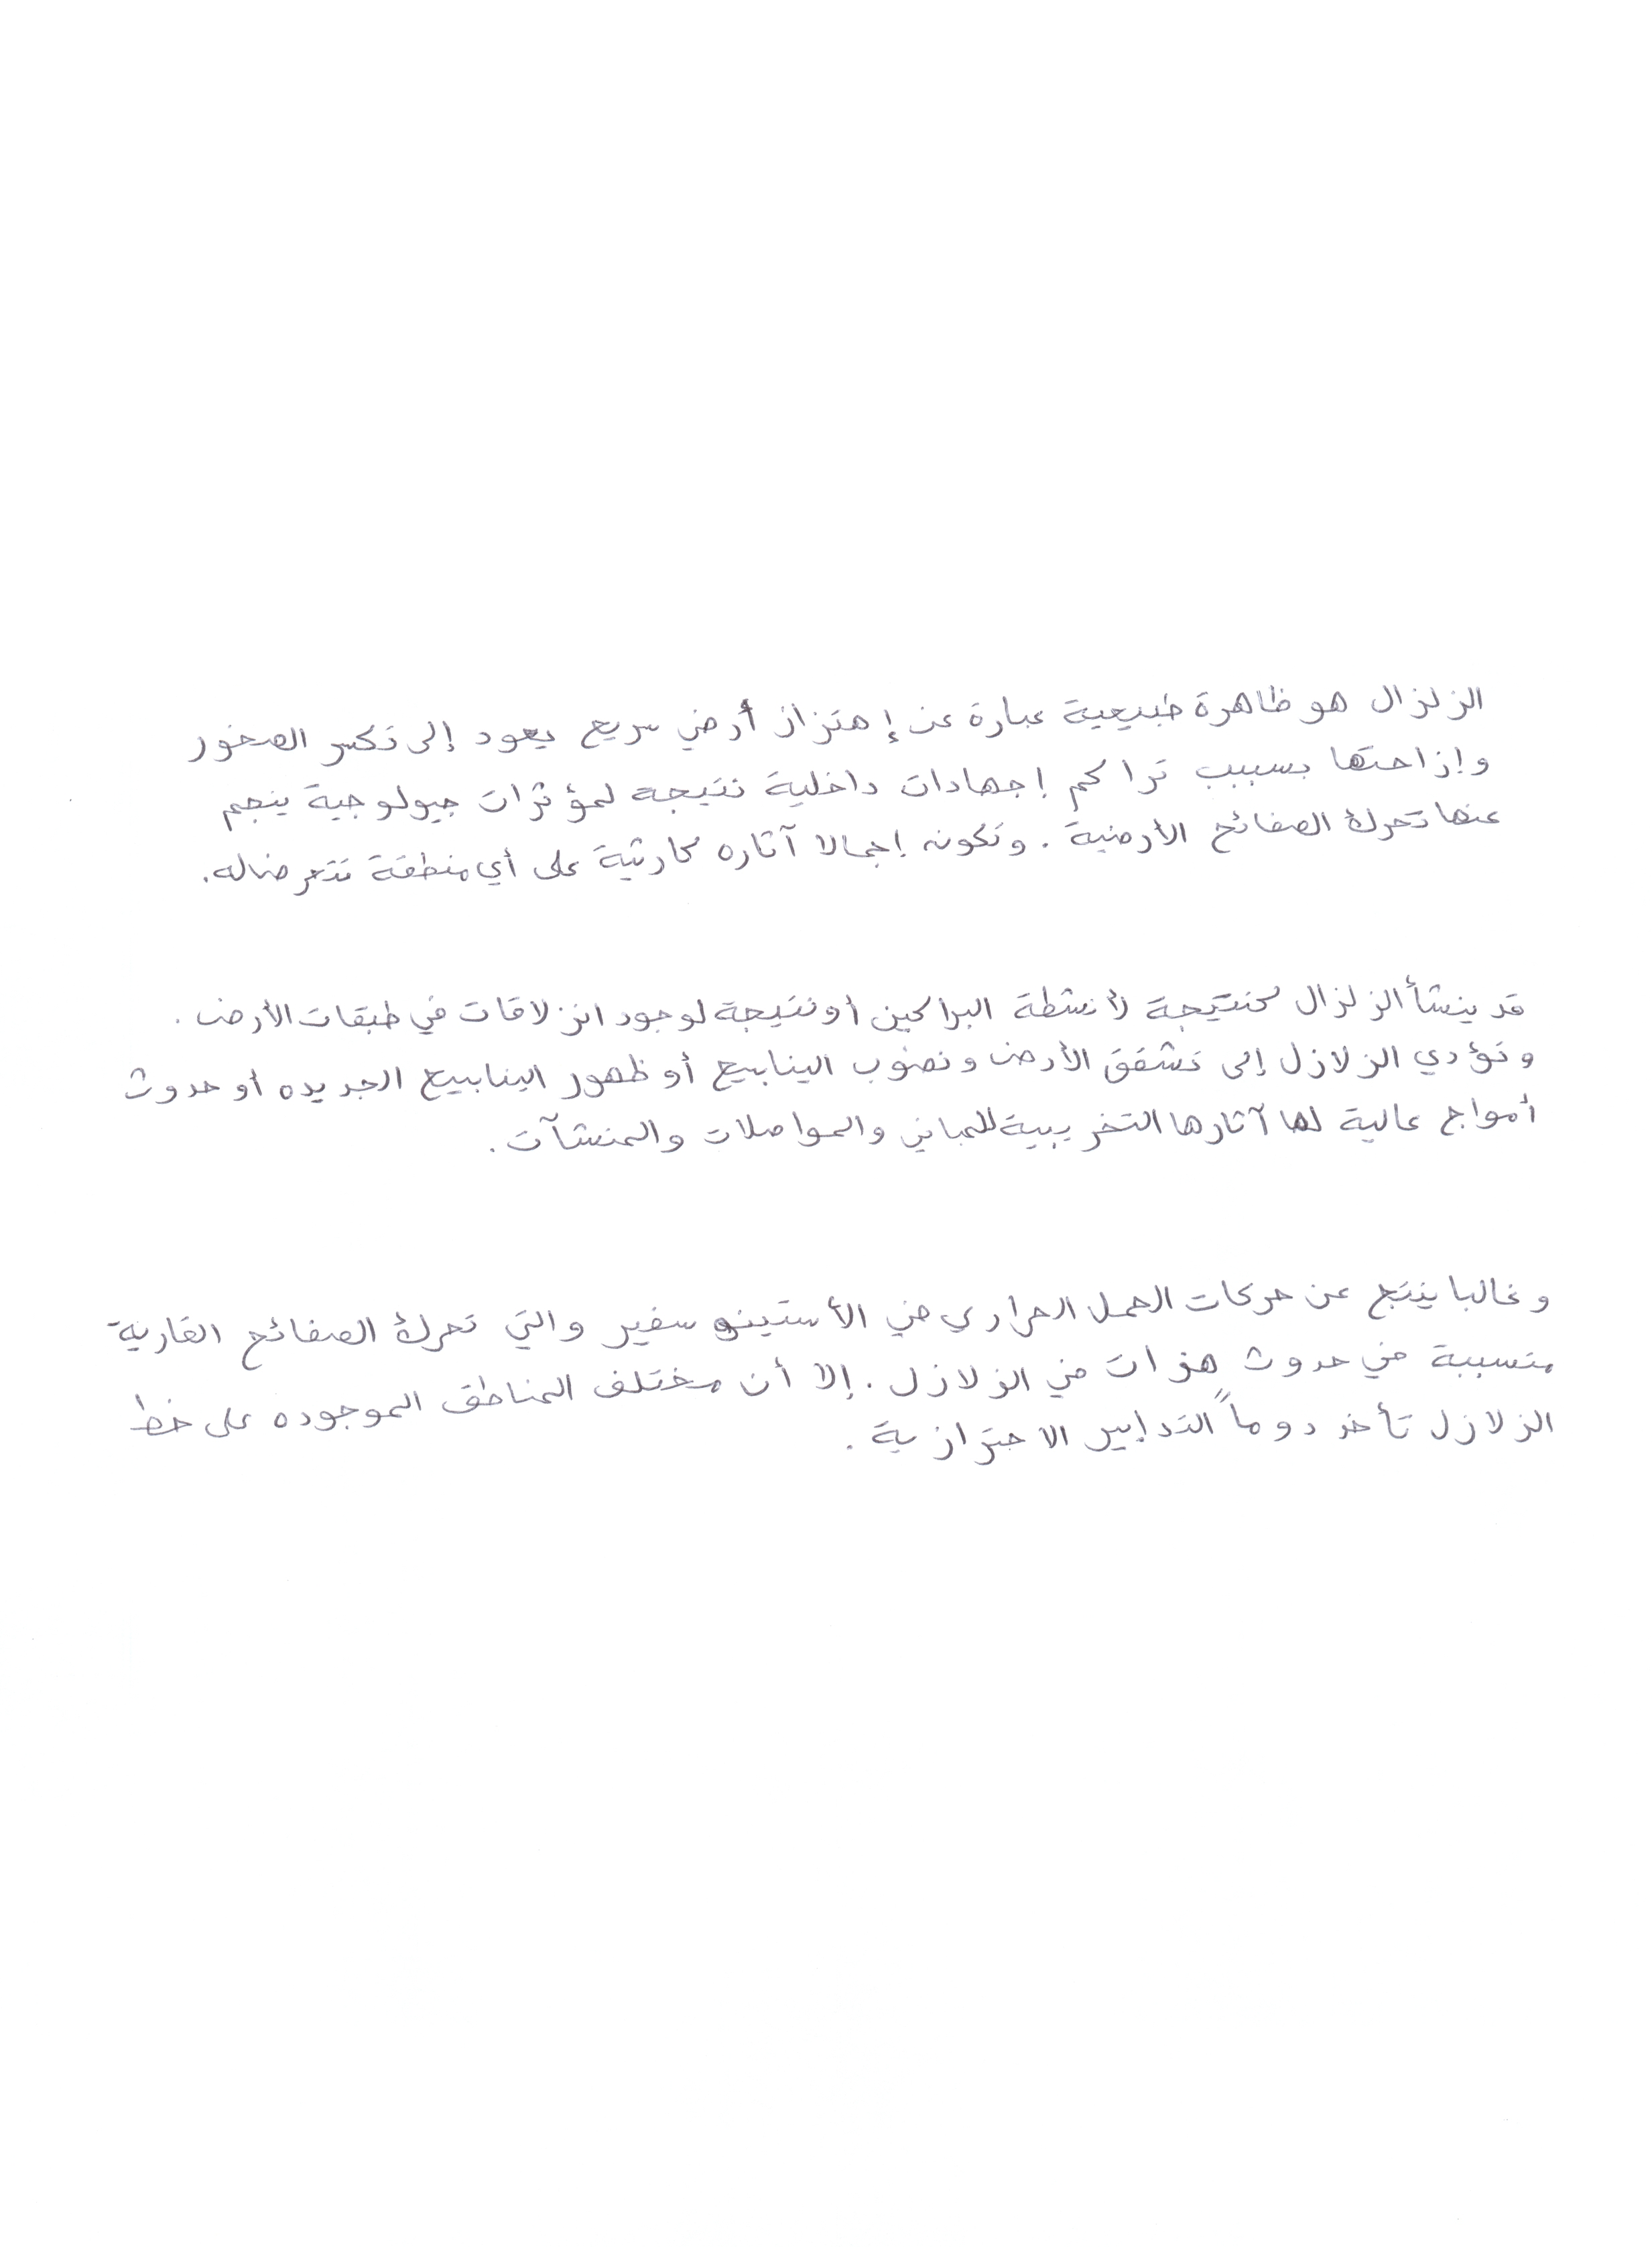 الزلزال هو ظاهرة طبيعية عبارة عن إهتزاز أرضي سريع يعود إلى تكسر الصخور
وإزاحتها بسببب تراكم إجهادات داخلية نتيجة لمؤثرات جيولوجية ينجم
عنها تحرك الصفائح الأرضية . وتكون إجمالا آثاره كارثية على أي منطقة تتعرضاله.
قد ينشأ الزلزال كنتيجة لأنشطة البراكين أو نتيجة لوجود انزلاقات في طبقات الأرض .
وتؤدي الزلازل إلى تشقق الأرض ونضوب الينابيع أو ظهور الينابيع الجديده أو حدوث
أمواج عالية لها آثارها التخريبية للمباني والمواصلات والمنشآت .
وغالبا ينتج عن حركات الحمل الحراري في الأستينوسفير والتي تحرك الصفائح القارية
متسببة في حدوث هزات في الزلازل . إلا أن مختلف المناطق الموجوده على خط
الزلازل تأخذ دوماً التدابير الاحترازية .